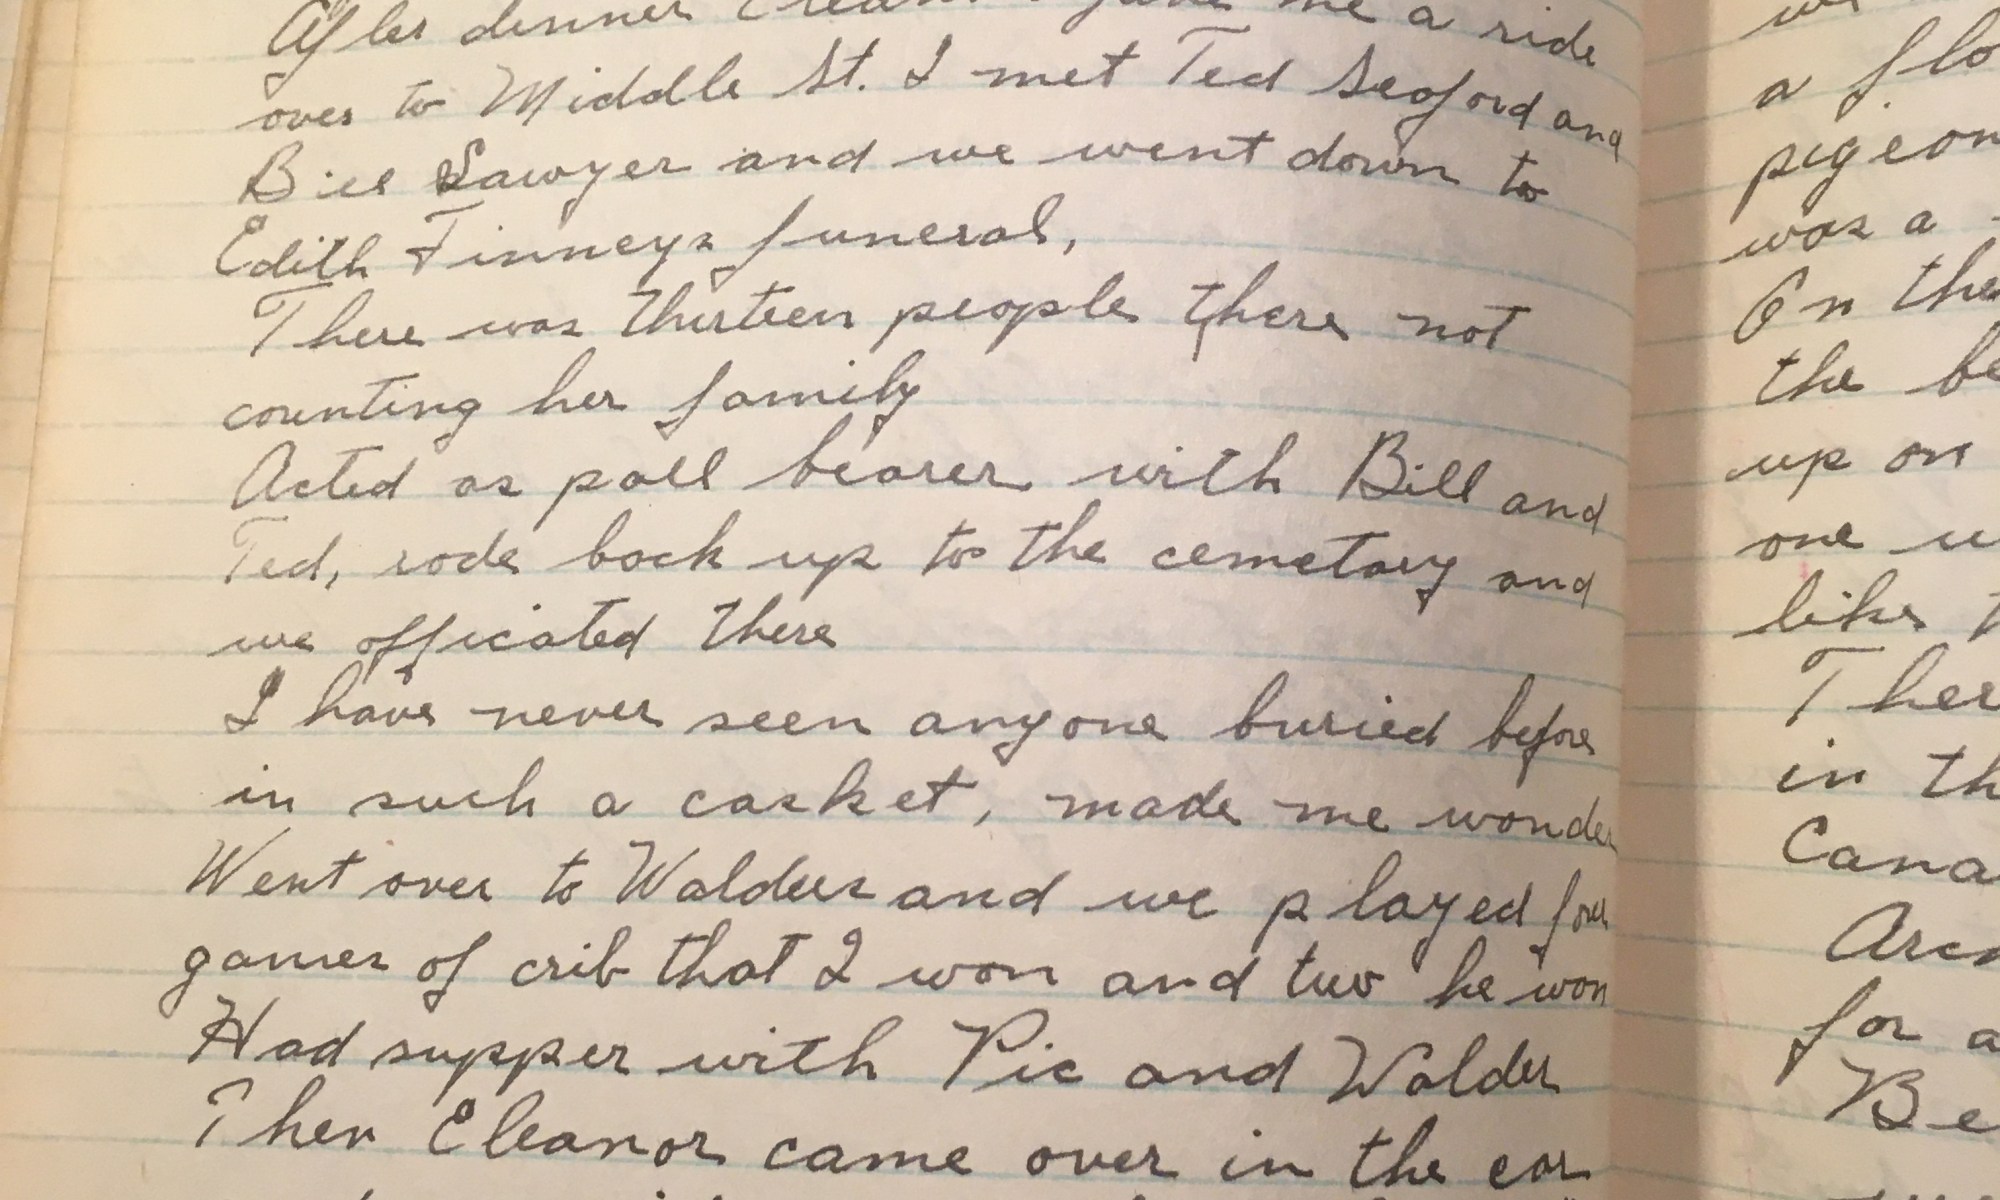 After dinner Eleanor gave me a ride
over to Middle St. I met Ted Seaford and
Bill Sawyer and we went down to
Edith Finneys funeral,
There was thirteen people there not
counting her family
Acted as pall bearer with Bill and
Ted, rode back up to the cemetary and
we officated there
I have never seen anyone buried before
in such a casket, made me wonder
Went over to Walders and we played four
games of crib that I won and two he won
Had supper with Pic and Walder
Then Eleanor came over in the car
a flo
pigeon
was a
On the
the be
up on
one
like t
Ther
in th
Cana
Arc
for a
Be